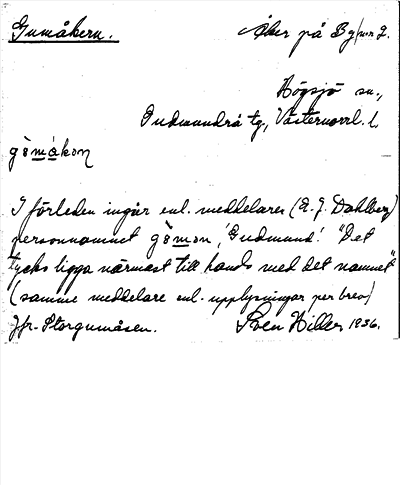 Gumåkern.
Åker på By nr 2.
Högsjö sn.,
Gudmundrå tg, Västernorrl. l.
gò̀màkon
I förleden ingår enl. meddelares (E. J. Dahlberg)
personnamnet gò̀mon, 'Gudmund'. "Det
tycks ligga närmast till hands med det namnet"
(samme meddelare enl. upplysningar per brev)
Jfr. Storgumåsen.
Sven Hiller 1936.